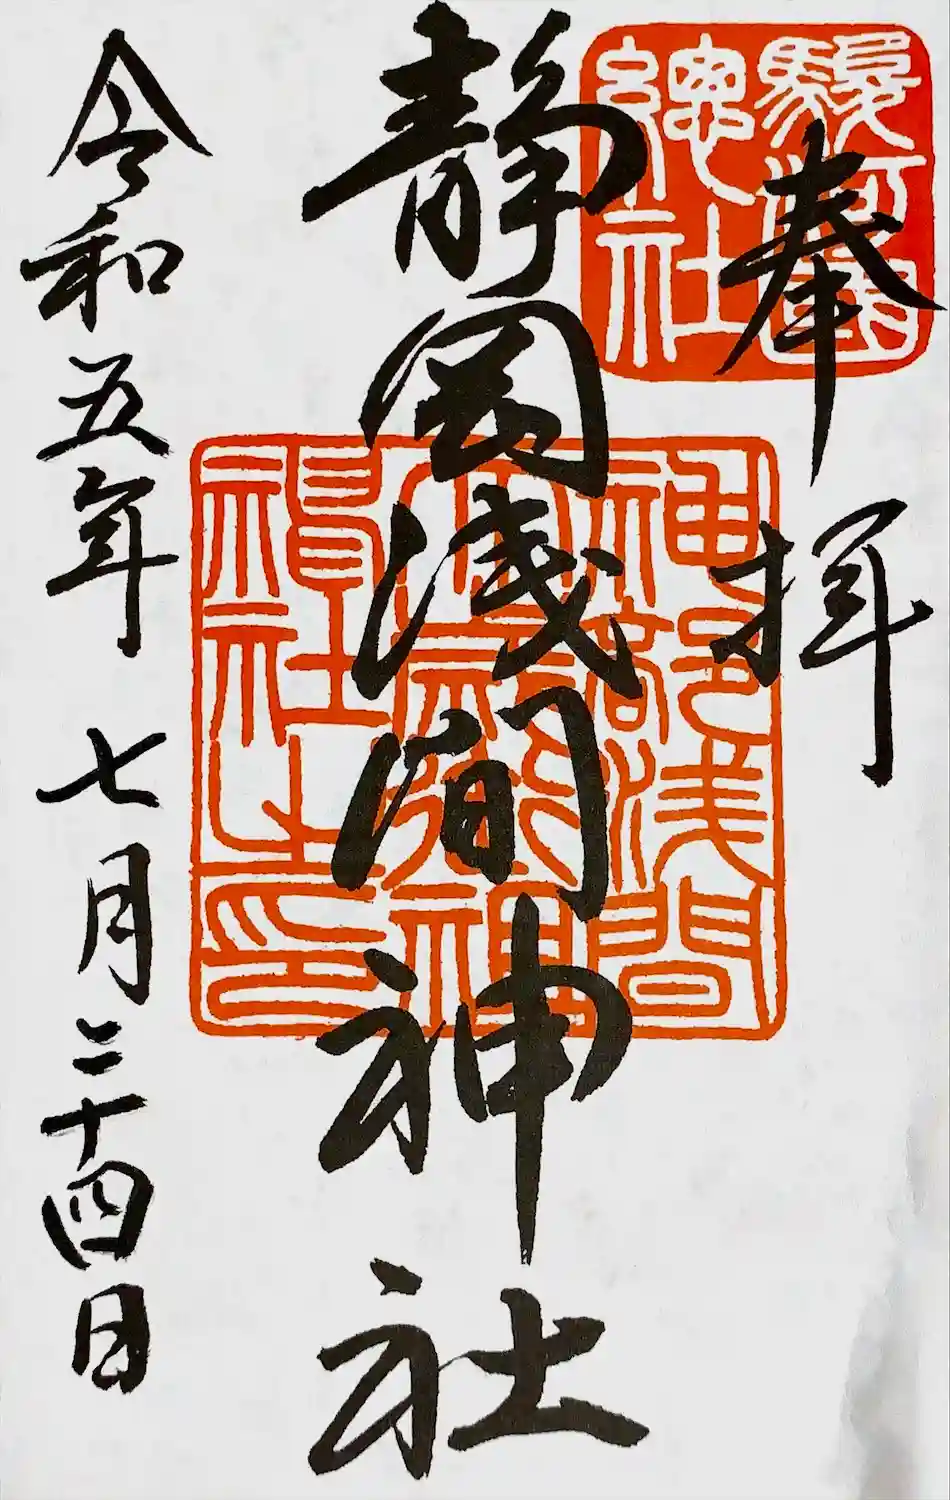 奉拝
駿河國
總社
静岡浅間神社
神部浅間
大歳御祖
神社之印
令和五年七月二十四日